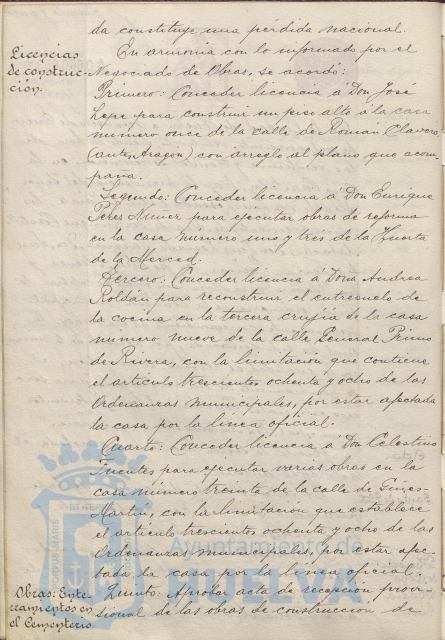 da constituye una pérdida nacional.
Licencias de construcción.
En armonía con lo informado por el
Negociado de Obras, se acordó:
Primero: Conceder licencia á Don José
Lepe para construir un piso alto á la casa
número once de la calle de Roman Clavero
(antes Aragon) con arreglo al plano que acom-
paña.
Segundo: Conceder licencia á Don Enrique
Peres Nuñer para ejecutar obras de reforma
en la casa número uno y tres de la Huerta
de la Merced.
Tercero: Conceder licencia á Doña Andrea
Roldán para reconstruir el entresuelo de
la cocina en la tercera crujía de la casa
número nueve de la calle General Primo
de Rivera, con la limitación que contiene
el artículo trescientos ochenta y ocho de las
Ordenanzas municipales, por estar afectada
la casa por la línea oficial.
Cuarto: Conceder licencia á Don Celestino
Fuentes para ejecutar varias obras en la
casa número treinta de la calle de Gines
Martin, con la limitacion que establece
el artículo trescientos ochenta y ocho de las
Ordenanzas municipales, por estar afec-
tada la casa por la línea oficial.
Obras: Ente-
rramientos en
el Cementerio
Quinto: Aprobar acta de recepción provi-
sional de las obras de construcción de
Ayuntamiento de
HUELVA